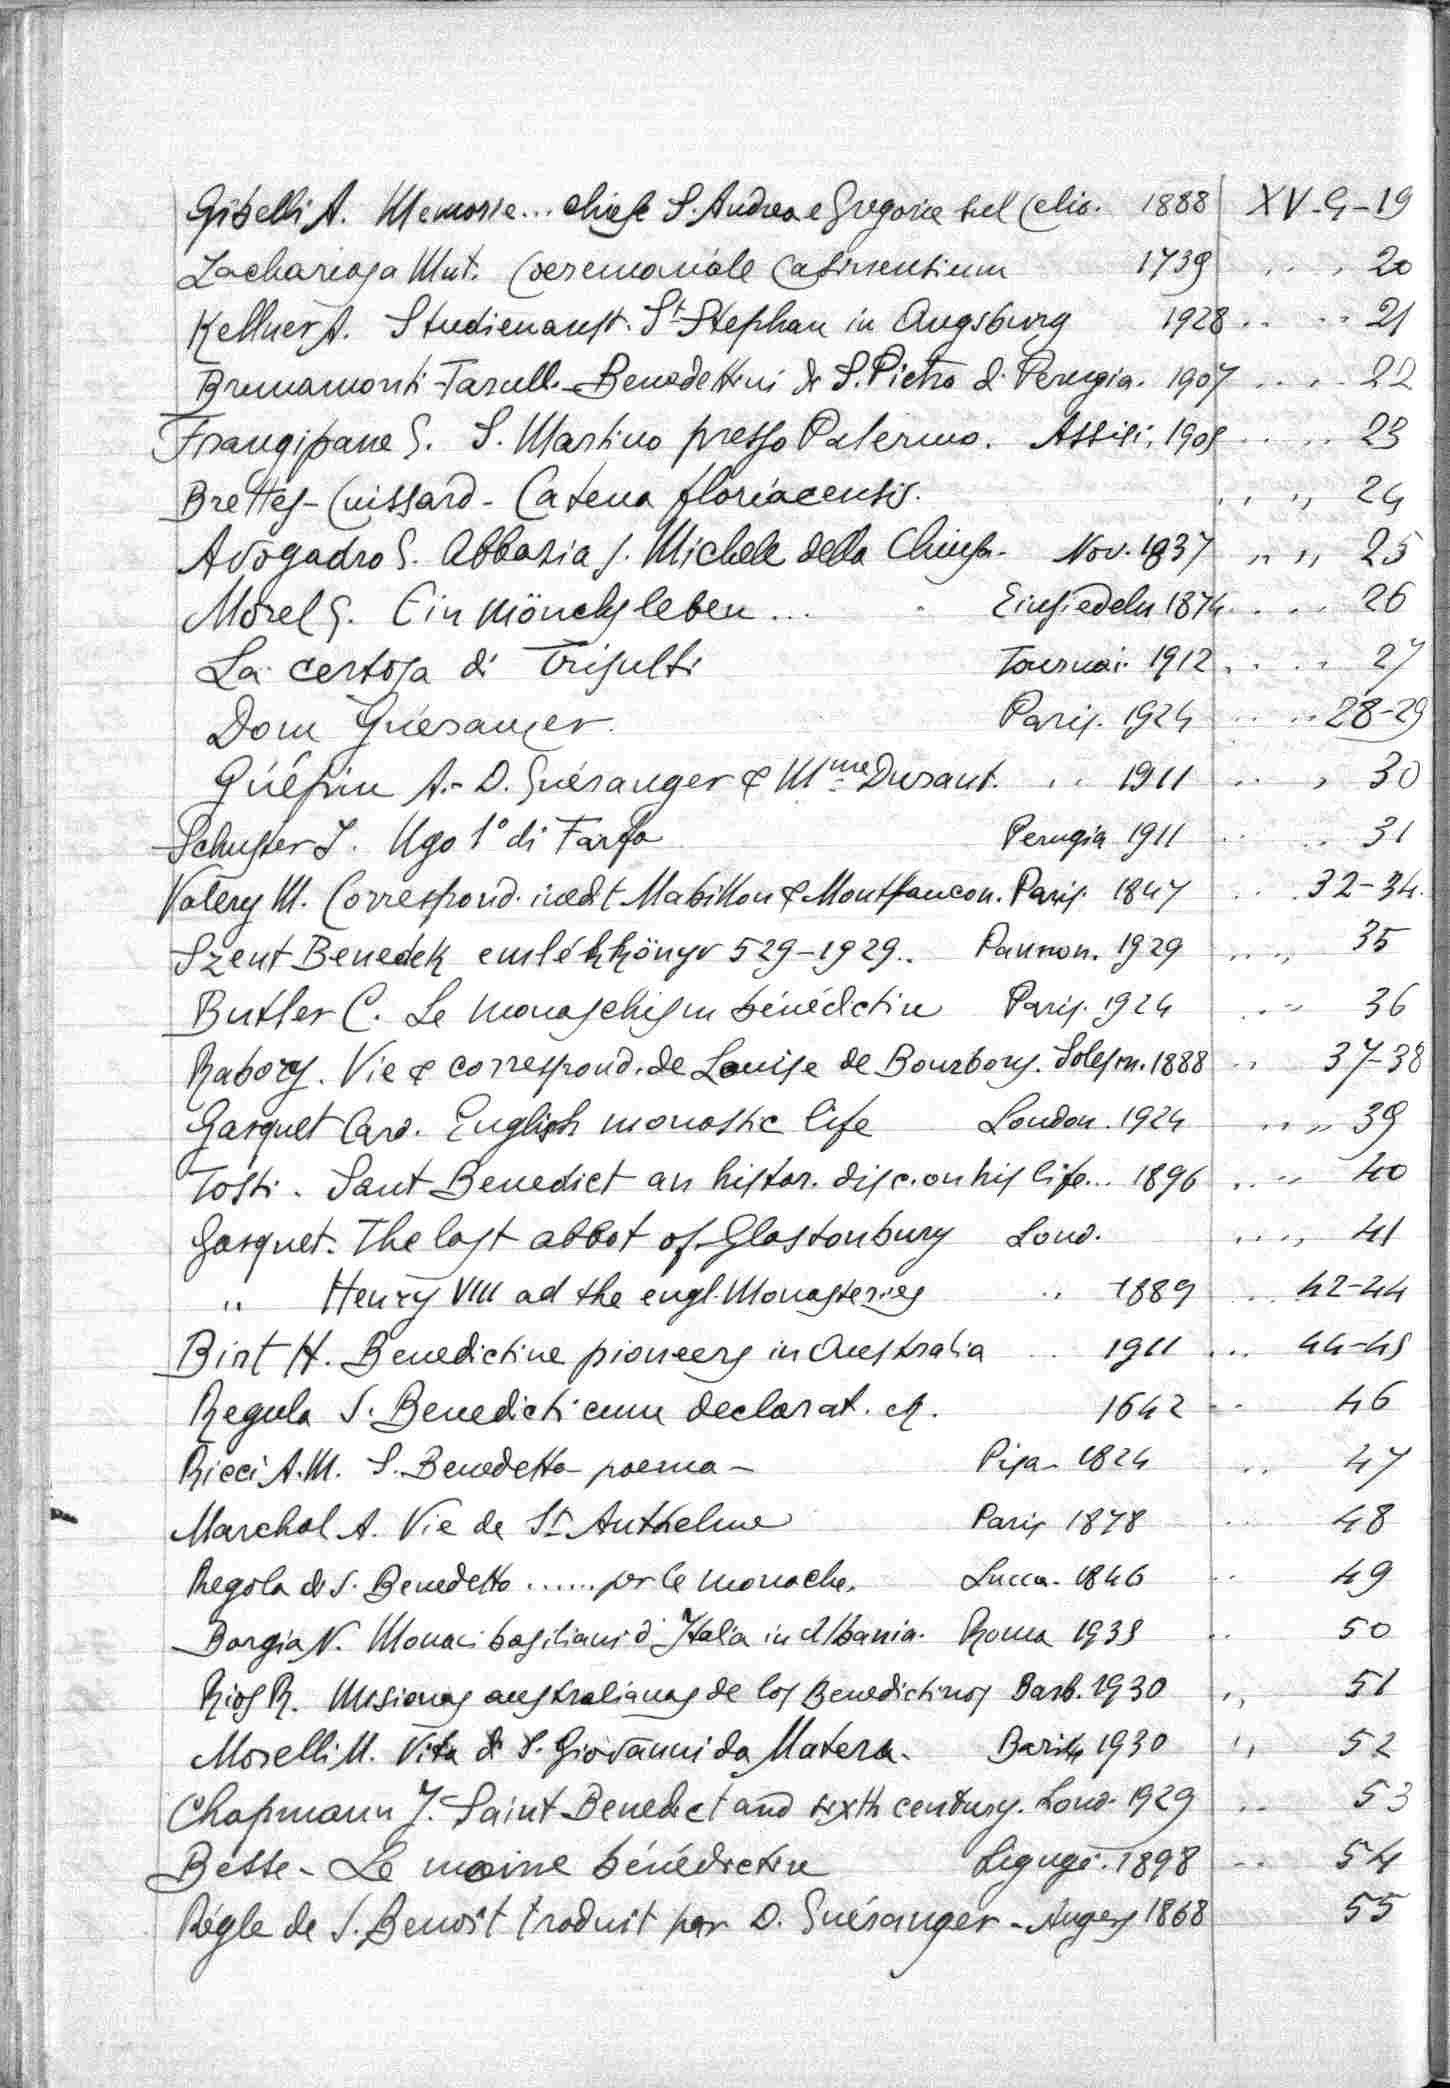 Gibelli A. Memorie... chiese S. Andrea e Gregorio sul Celio. 1888 XV-G-19
Zachariasa Mut. Coeremoniale Casinensium 1739 .. . 20
Kellner A. Studienanst. St Stephan in Augsburg 1928 .. .. 21
Brunamonti-Tarulli - Benedettini di S. Pietro di Perugia. 1907 .. .. 22
Frangipane G. S. Martino presso Palermo. Assisi, 1905 .. .. 23
Brettes-Cuissard - Catena floriacensis. .. ,, 24
Avogadro G. Abbazia S. Michele della Chiusa. Nov. 1837 ,, ,, 25
Morel G. Ein Mönchsleben ... Einsiedeln 1874 .. .. 26
La certosa di Trisulti Tournai 1912 .. .. 27
Dom Guéranger. Paris. 1924 .. .. 28-29
Guépin A.- D. Guéranger & Mme Durant. .. 1911 .. , 30
Schuster I. Ugo 1° di Farfa Perugia 1911 .. .. 31
Valery M. Correspond. inedt Mabillon & Montfaucon. Paris. 1847 .. 32-34.
Szent Benedek emlékkönyv 529-1929.. Pannon. 1929 .. ,, 35
Butler C. Le monaschism bénédctin Paris. 1924 .. .. 36
Rabory. Vie & correspond. de Louise de Bourbons. Solesm. 1888 .. 37-38
Gasquet Card. English monastic life London. 1924 .. ,, 39
Tosti. Sant Benedict an histor. disc. on his life... 1896 .. .. 40
Gasquet. The last abbot of Glastonbury Lond. .. ,, 41
,, Henry VIII ad the engl. Monasteries .. 1889 .. 42-44
Birt H. Benedictine pioneers in Australia .. 1911 ... 44-45
Regula S. Benedicti cum declarat. 1642 .. 46
Ricci A.M. S. Benedetto poema - Pisa - 1824 .. 47
Marchal A. Vie de St Anthelme Paris 1878 .. 48
Regola di S. Benedetto ...... per le monache. Lucca. 1846 .. 49
Borgia N. Monaci basiliani d'Italia in Albania. Roma 1935 .. 50
Rios R. Misiones australianas de los Benedictinos Barb. 1930 ,, 51
Morelli M. Vita di S. Giovanni da Matera. 1930 ,, 52
Chapmann J. Saint Benedict and sixth century. Lond. 1929 .. 53
Besse - Le moine bénédictin Ligugé. 1898 .. 54
Règle de S. Benoît traduit par D. Guéranger - Angers 1868 55